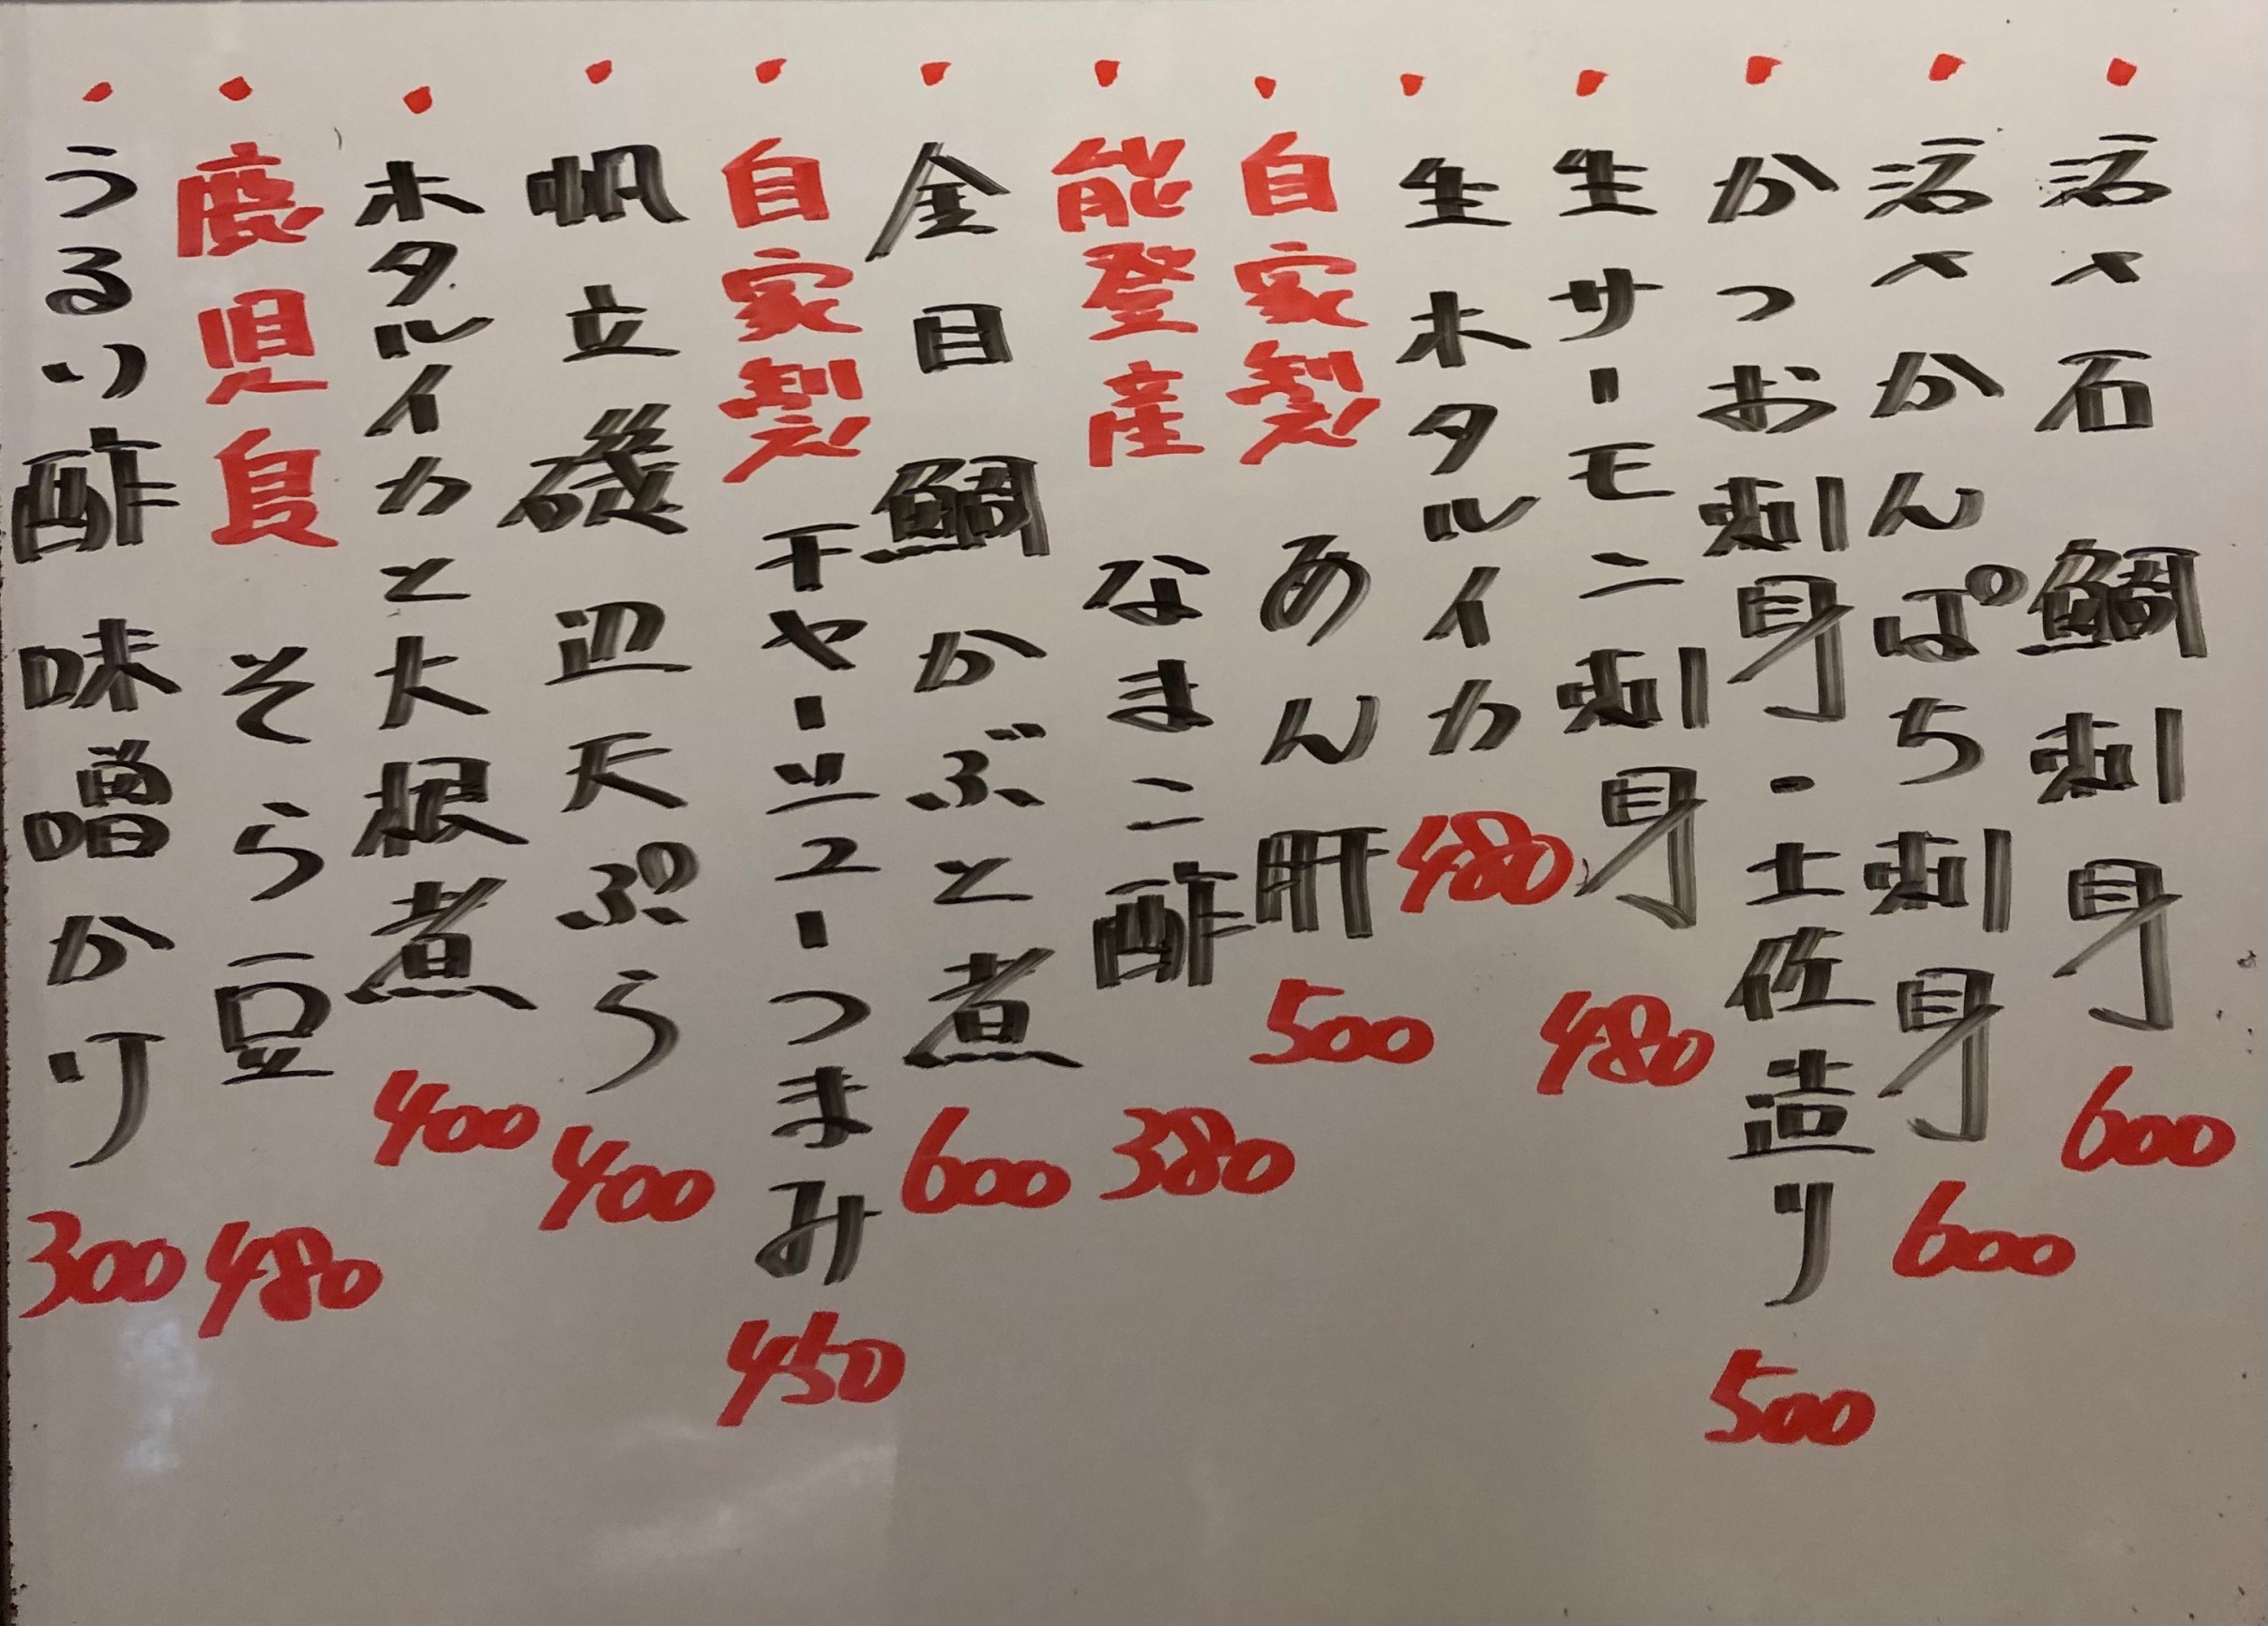 ・活〆石鯛刺身 600
・活〆かんぱち刺身 600
・かつお刺身・土佐造り 500
・生サーモン刺身 480
・生ホタルイカ 480
・自家製 あん肝 500
・能登産 なまこ酢 380
・金目鯛かぶと煮 600
・自家製 チャーシューつまみ 450
・帆立磯辺天ぷら 400
・ホタルイカと大根煮 400
・鹿児島 そら豆 480
・うるい酢味噌かけ 300